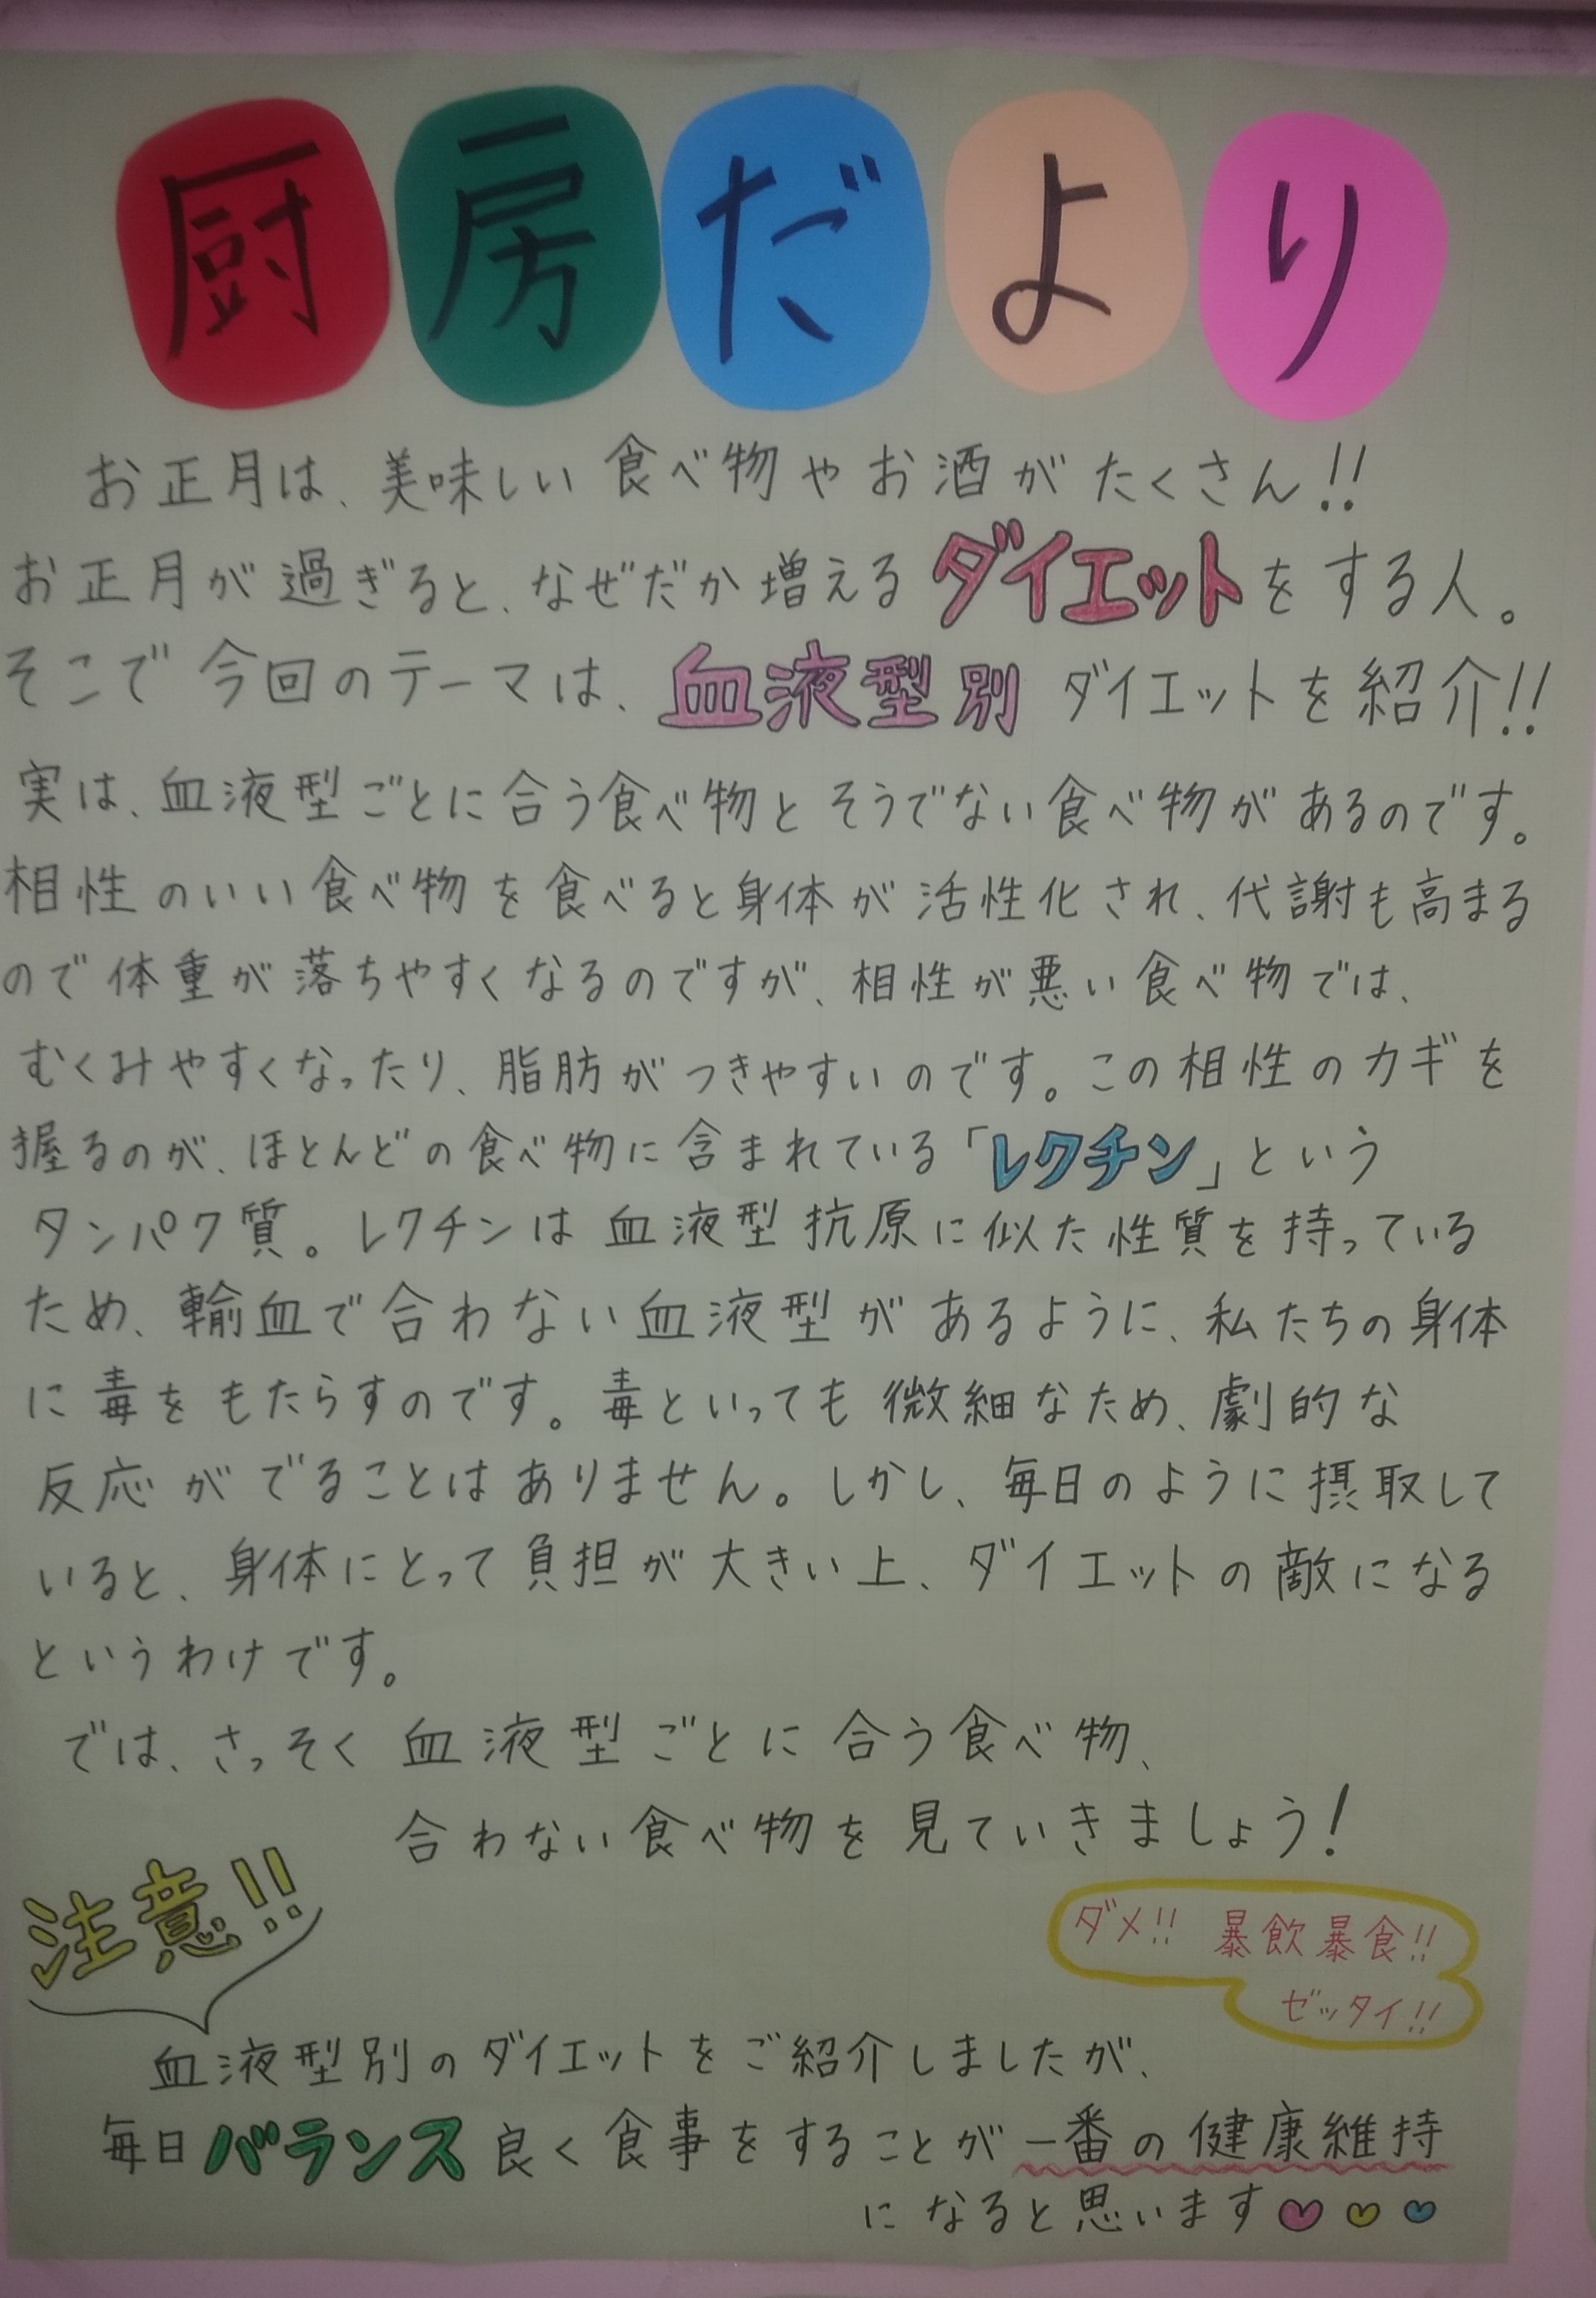 厨房だより
お正月は、美味しい食べ物やお酒がたくさん!!
お正月が過ぎると、なぜだか増えるダイエットをする人。
そこで今回のテーマは、血液型別ダイエットを紹介!!
実は、血液型ごとに合う食べ物とそうでない食べ物があるのです。
相性のいい食べ物を食べると身体が活性化され、代謝も高まる
ので体重が落ちやすくなるのですが、相性が悪い食べ物では、
むくみやすくなったり、脂肪がつきやすいのです。この相性のカギを
握るのが、ほとんどの食べ物に含まれている「レクチン」という
タンパク質。レクチンは血液型抗原に似た性質を持っている
ため、輸血で合わない血液型があるように、私たちの身体
に毒をもたらすのです。毒といっても微細なため、劇的な
反応がでることはありません。しかし、毎日のように摂取して
いると、身体にとって負担が大きい上、ダイエットの敵になる
というわけです。
では、さっそく血液型ごとに合う食べ物、
合わない食べ物を見ていきましょう!
注意!!
ダメ!! 暴飲暴食!!
ゼッタイ!!
血液型別のダイエットをご紹介しましたが、
毎日バランス良く食事をすることが一番の健康維持
になると思います♡♡♡